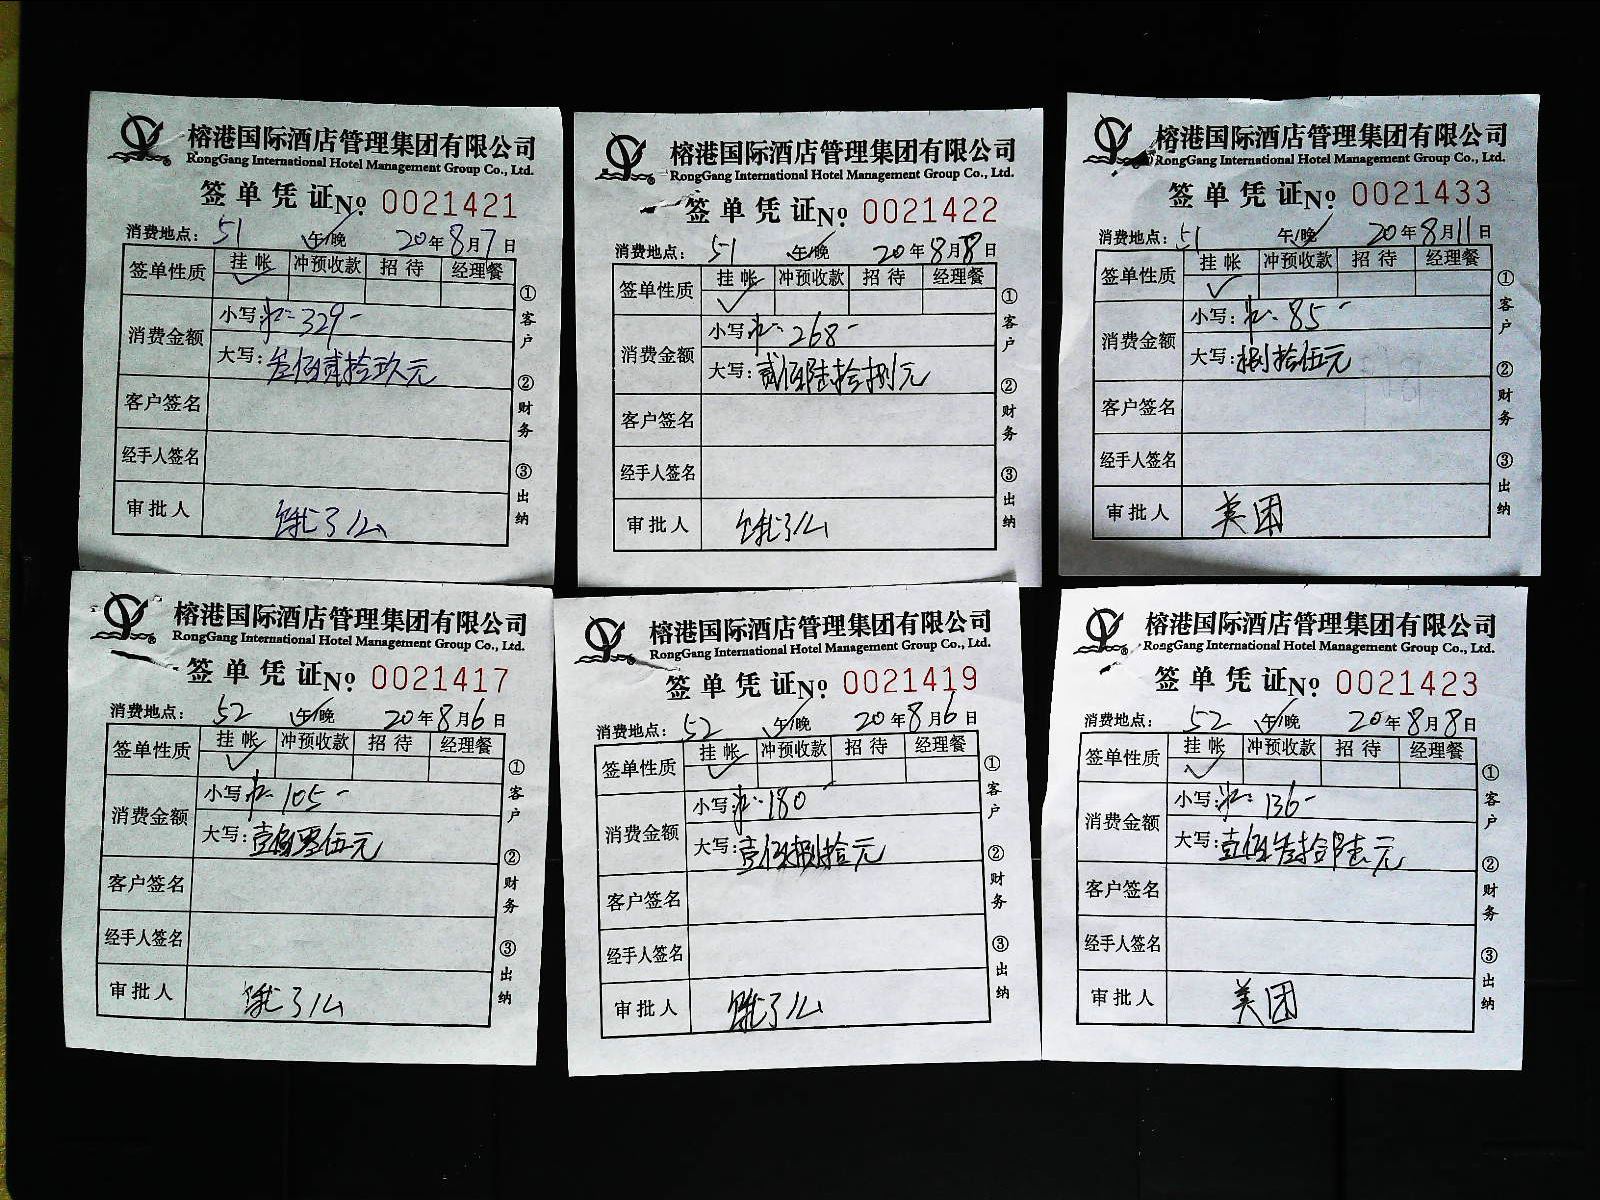 榕港国际酒店管理集团有限公司
RongGang International Hotel Management Group Co., Ltd.
签单凭证 No 0021421
消费地点：51 午/晚 20年8月7日
签单性质 挂帐 冲预收款 招待 经理餐
消费金额 小写：329-
大写：叁佰贰拾玖元
客户签名
经手人签名
审批人 饿了么
①客户 ②财务 ③出纳
榕港国际酒店管理集团有限公司
RongGang International Hotel Management Group Co., Ltd.
签单凭证 No 0021422
消费地点：51 午/晚 20年8月8日
签单性质 挂帐 冲预收款 招待 经理餐
消费金额 小写：268-
大写：贰佰陆拾捌元
客户签名
经手人签名
审批人 饿了么
①客户 ②财务 ③出纳
榕港国际酒店管理集团有限公司
RongGang International Hotel Management Group Co., Ltd.
签单凭证 No 0021433
消费地点：51 午/晚 20年8月11日
签单性质 挂帐 冲预收款 招待 经理餐
消费金额 小写：85-
大写：捌拾伍元
客户签名
经手人签名
审批人 美团
①客户 ②财务 ③出纳
榕港国际酒店管理集团有限公司
RongGang International Hotel Management Group Co., Ltd.
签单凭证 No 0021417
消费地点：52 午/晚 20年8月6日
签单性质 挂帐 冲预收款 招待 经理餐
消费金额 小写：105-
大写：壹佰零伍元
客户签名
经手人签名
审批人 饿了么
①客户 ②财务 ③出纳
榕港国际酒店管理集团有限公司
RongGang International Hotel Management Group Co., Ltd.
签单凭证 No 0021419
消费地点：52 午/晚 20年8月6日
签单性质 挂帐 冲预收款 招待 经理餐
消费金额 小写：180-
大写：壹佰捌拾元
客户签名
经手人签名
审批人 饿了么
①客户 ②财务 ③出纳
榕港国际酒店管理集团有限公司
RongGang International Hotel Management Group Co., Ltd.
签单凭证 No 0021423
消费地点：52 午/晚 20年8月8日
签单性质 挂帐 冲预收款 招待 经理餐
消费金额 小写：136-
大写：壹佰叁拾陆元
客户签名
经手人签名
审批人 美团
①客户 ②财务 ③出纳